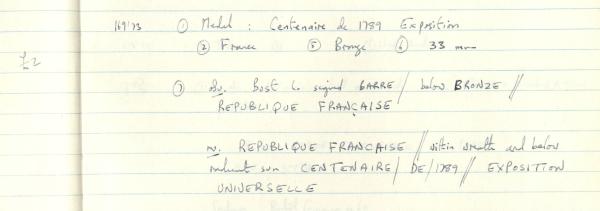 169'73 ① Medal : Centenaire de 1789 Exposition
② France ⑤ Bronze ⑥ 33 mm
£2
⑦ Obv. Bust L signed BARRE / below BRONZE //
REPUBLIQUE FRANÇAISE
rv. REPUBLIQUE FRANCAISE // within wreath and below
radiant sun CENTENAIRE / DE / 1789 // EXPOSITION
UNIVERSELLE